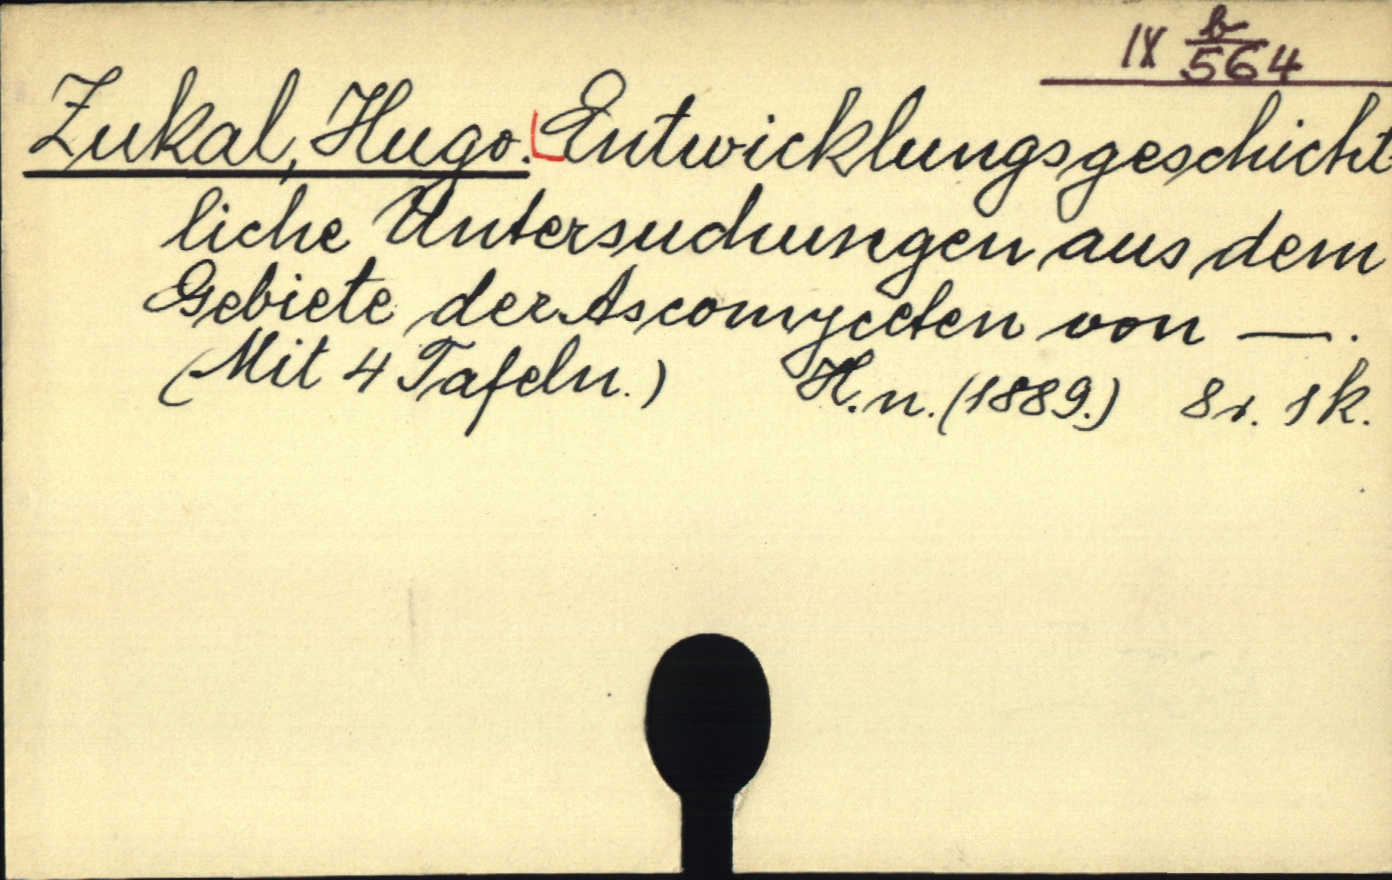 IX b/564
Zukal, Hugo. Entwicklungsgeschicht-
liche Untersuchungen aus dem
Gebiete der Ascomyceten von —.
(Mit 4 Tafeln.) H.n. (1889.) 8r. 1k.